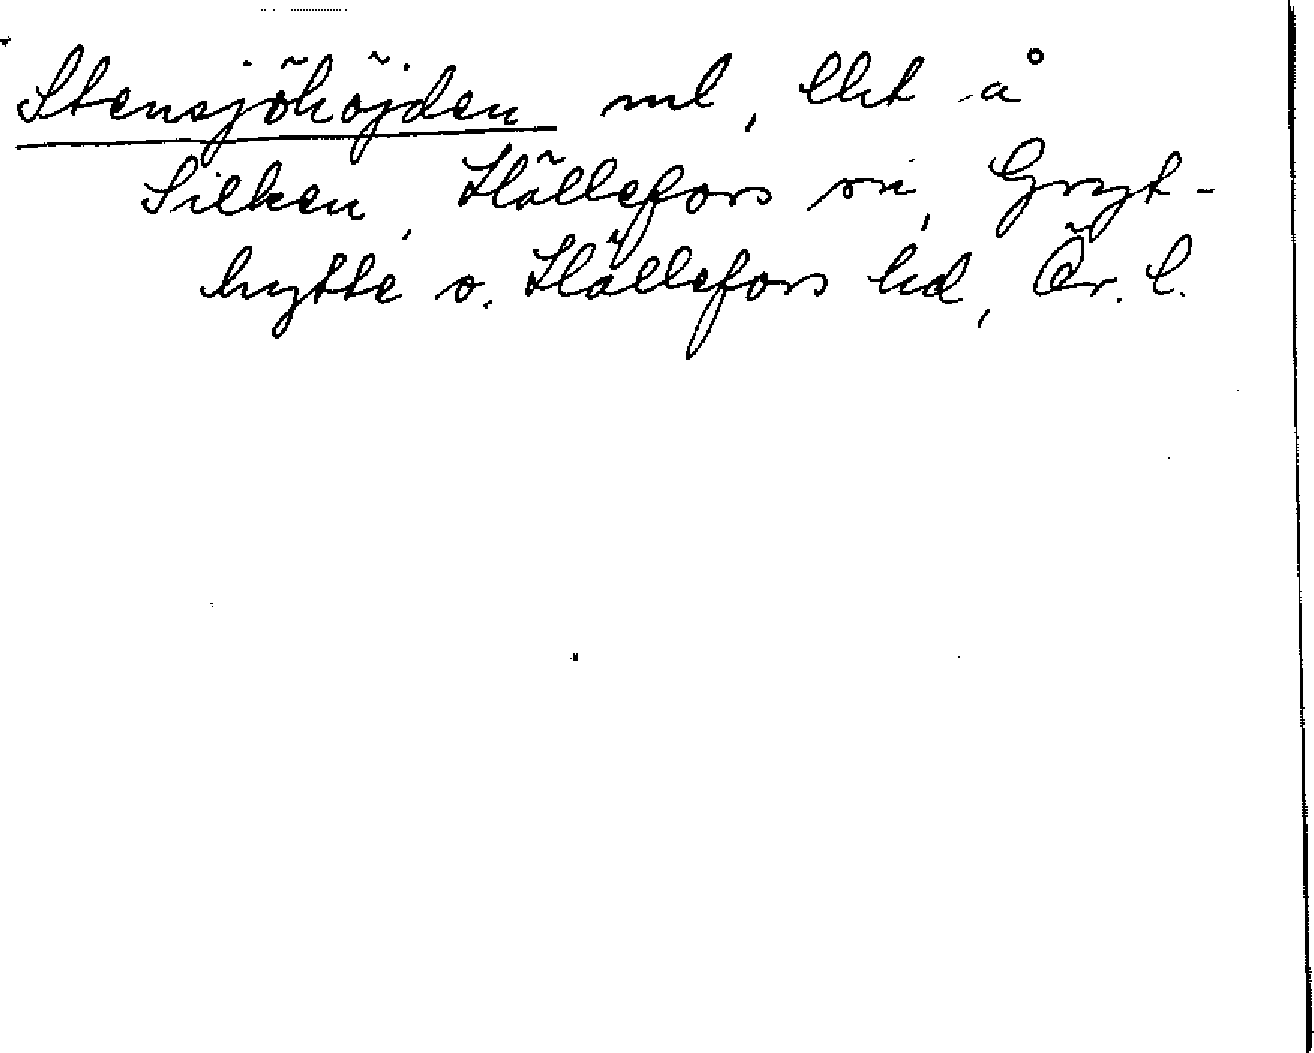 Stensjöhöjden ml, lht å
Silken, Hällefors sn, Gryt-
hytte o. Hällefors hd, Ör. l.